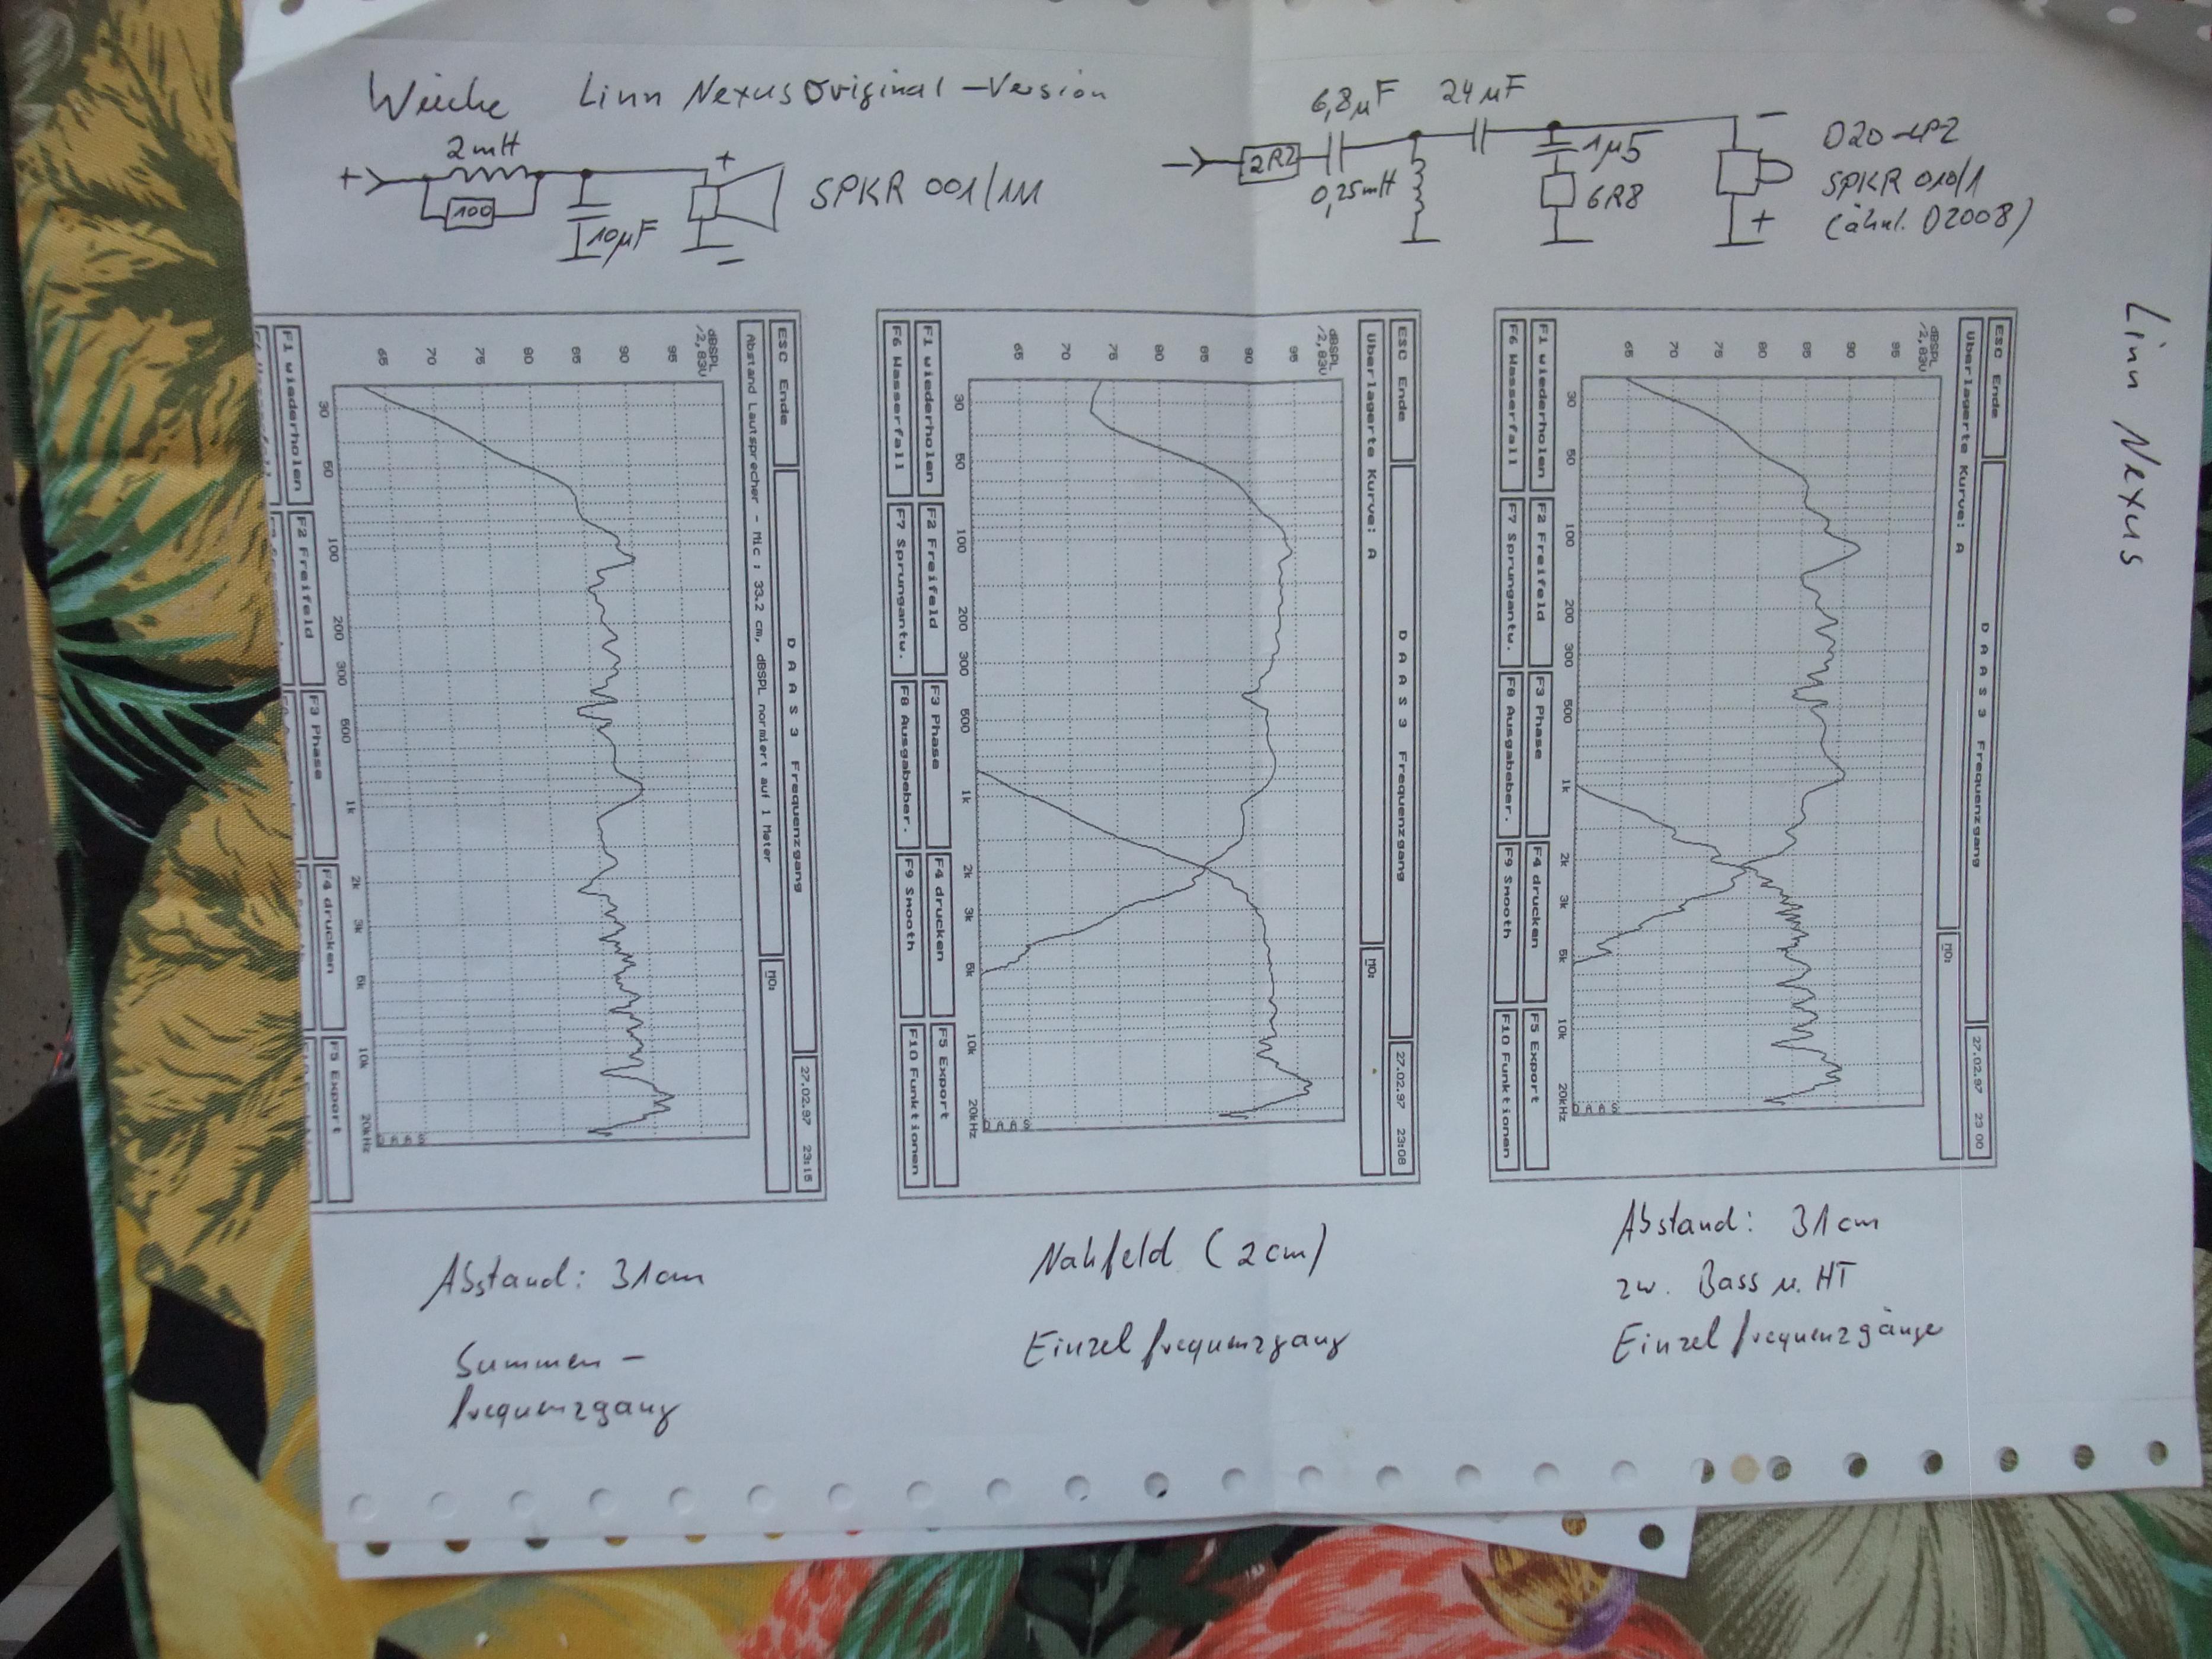 Weiche Linn Nexus Original-Version
2mH
100
10µF
+
+
-
SPKR 001/1M
2R2
6,8µF
0,25mH
24µF
1µ5
6R8
-
+
D20-LP2
SPKR 010/1
(ähnl. D2008)
Linn Nexus
ESC Ende
D A A S 3 Frequenzgang
27.02.97 23:15
Abstand Lautsprecher - Mic : 33.2 cm, dBSPL normiert auf 1 Meter
MO:
dBSPL
/2,83V
95
90
85
80
75
70
65
30 50 100 200 300 500 1k 2k 3k 5k 10k 20kHz
DAAS
F1 wiederholen F2 Freifeld F3 Phase F4 drucken F5 Export
Abstand: 31cm
Summen-
frequenzgang
ESC Ende
D A A S 3 Frequenzgang
27.02.97 23:08
Überlagerte Kurve: A
MO:
dBSPL
/2,83V
95
90
85
80
75
70
65
30 50 100 200 300 500 1k 2k 3k 5k 10k 20kHz
DAAS
F1 wiederholen F2 Freifeld F3 Phase F4 drucken F5 Export
F6 Wasserfall F7 Sprungantw. F8 Ausgabeber. F9 Smooth F10 Funktionen
Nahfeld (2cm)
Einzelfrequenzgang
ESC Ende
D A A S 3 Frequenzgang
27.02.97 23 00
Überlagerte Kurve: A
MO:
dBSPL
/2,83V
95
90
85
80
75
70
65
30 50 100 200 300 500 1k 2k 3k 5k 10k 20kHz
DAAS
F1 wiederholen F2 Freifeld F3 Phase F4 drucken F5 Export
F6 Wasserfall F7 Sprungantw. F8 Ausgabeber. F9 Smooth F10 Funktionen
Abstand: 31cm
zw. Bass u. HT
Einzelfrequenzgänge